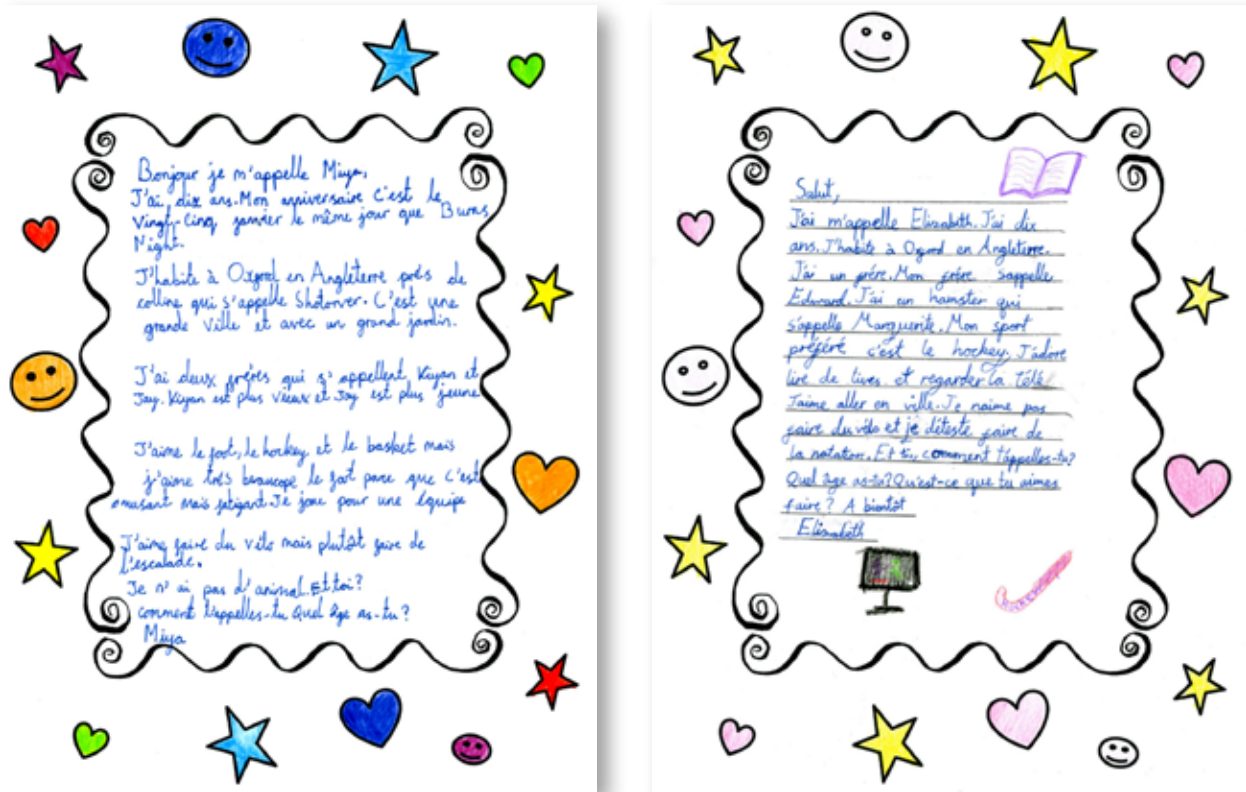 Bonjour je m'appelle Miya.
J'ai dix ans. Mon anniversaire c'est le
vingt-cinq janvier le même jour que Burns
Night.
J'habite à Oxford en Angleterre près de
colline qui s'appelle Shotover. C'est une
grande ville et avec un grand jardin.
J'ai deux frères qui s'appellent Kiyan et
Jay. Kiyan est plus vieux et Jay est plus jeune
J'aime le foot, le hockey et le basket mais
j'aime très beaucope le foot parce que c'est
amusant mais fatigant. Je joue pour une équipe
J'aime faire du vélo mais plutôt faire de
l'escalade.
Je n'ai pas d'animal. Et toi?
comment t'appelles-tu Quel âge as-tu?
Miya
Salut,
J'ai m'appelle Elizabeth. J'ai dix
ans. J'habite à Oxford en Angleterre.
J'ai un frére. Mon frére s'appelle
Edward. J'ai un hamster qui
s'appelle Marguerite. Mon sport
préféré c'est le hockey. J'adore
lire de livres et regarder la télé.
J'aime aller en ville. Je n'aime pas
faire du vélo et je déteste faire de
la notation. Et tu, comment t'appelles-tu?
Quel âge as-tu? Qu'est-ce que tu aimes
faire? A bientôt
Elizabeth